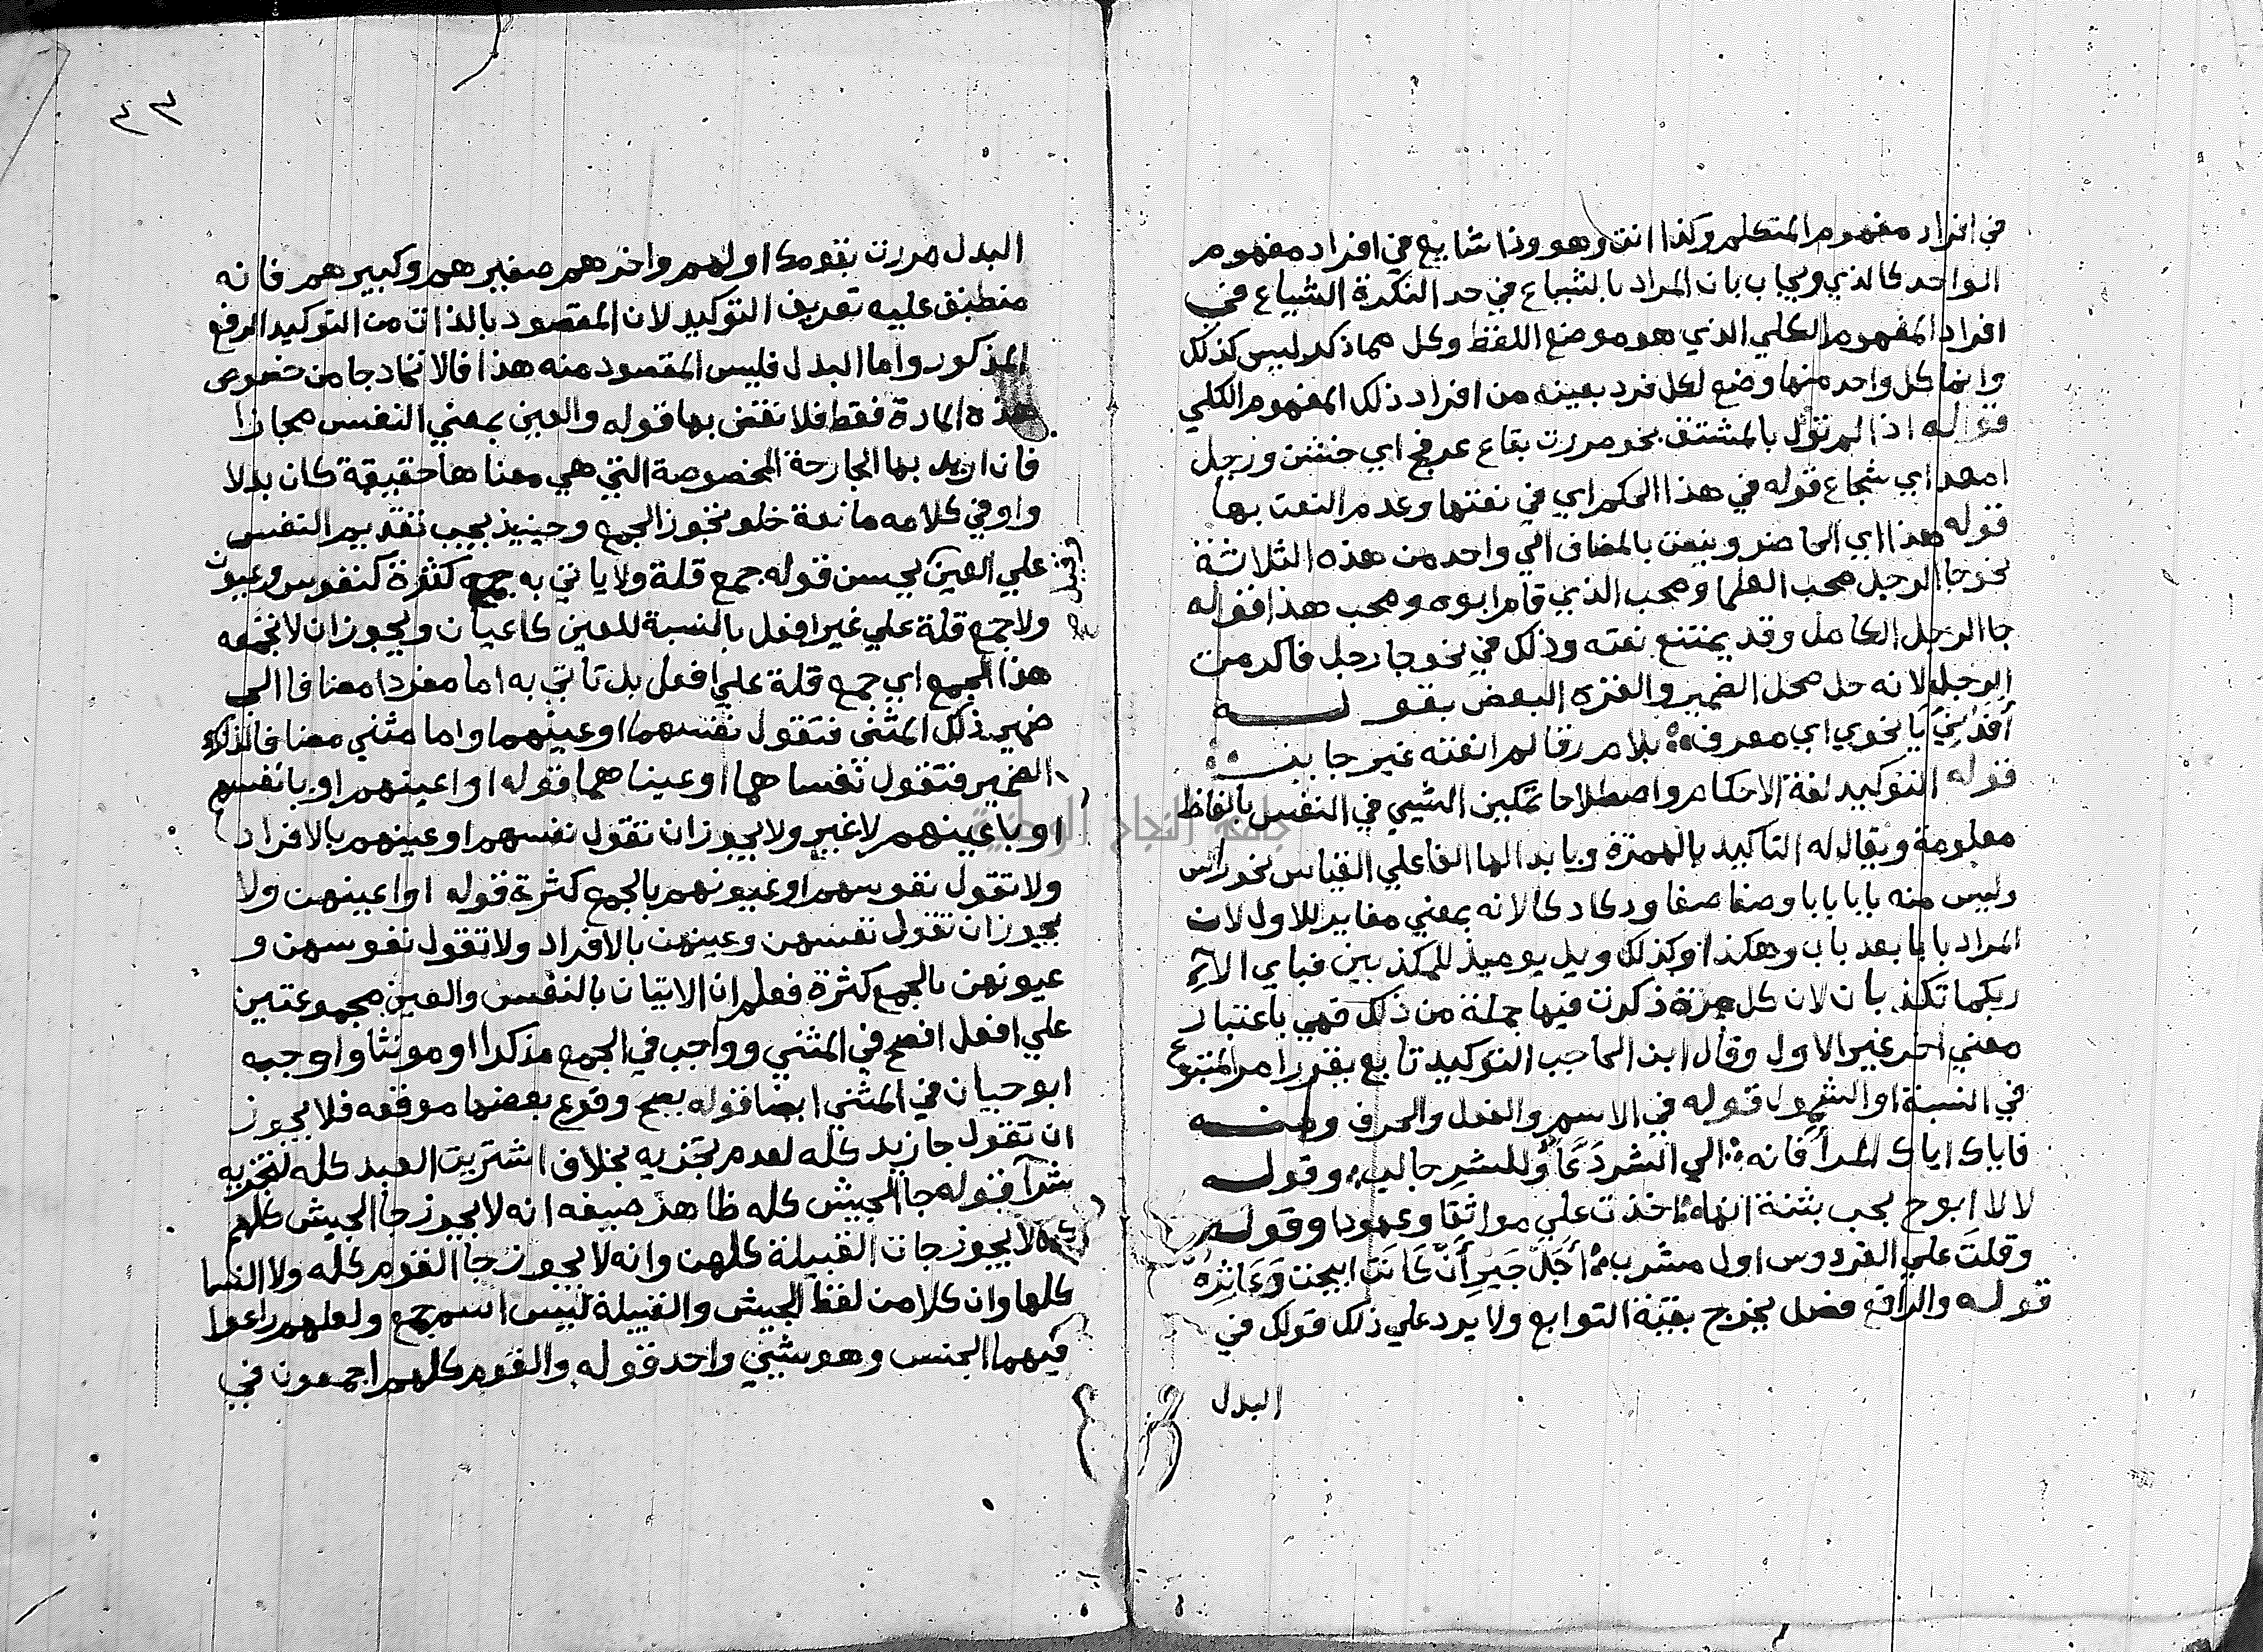 في افراد مفهوم المتكلم وكذا انت وهو وذا شايع في افراد مفهوم
الواحد كالذي ويجاب بان المراد بالشياع في حد النكرة الشياع في
افراد المفهوم الكلي الذي هو موضع اللفظ وكل مما ذكر ليس كذلك
وانما كل واحد منها وضع لكل فرد بعينه من افراد ذلك المفهوم الكلي
قوله اذا لم تؤل بالمشتق نحو مررت بقاع عرفج اي خشن ورجل
اي شجاع قوله في هذا الحكم اي في نعتها وعدم النعت بها
قوله هذا اي الحاضر وينعت بالمضاف الي واحد من هذه الثلاثة
نحو جا الرجل محب العلما ومحب الذي قام ابوه ومحب هذا فقوله
جا الرجل الكامل وقد يمتنع نعته وذلك في نحو جا رجل فاكرمت
الرجل لانه حل محل الضمير والغزه البعض بقولـــه
يا نحوي اي معرف بلام رقا لم انعته غير جا
قوله التوكيد لغة الاحكام واصطلاحا تمكين الشيي في النفس بالفاظ
معلومة ويقال له التاكيد بالهمزة وبابدالها الفا علي القياس نحو راس
وليس منه بابا بابا وصفا صفا ودكا دكا لانه بمعني مغاير للاول لان
المراد بابا بعد باب وهكذا وكذلك ويل يوميذ للمكذبين فباي الآء
ربكما تكذبان لان كل مرة ذكرت فيها جملة من ذلك فهي باعتبار
معني اخر غير الاول وقال ابن الحاجب التوكيد تابع يقرر امر المتبوع
في النسبة او الشمول قوله في الاسم والفعل والحرف ومنـــه
فاياك اياك المرآ فانه الي الشر دَعَّآ وللشر جالب وقولـــه
لا لا ابوح بحب بثنة انها اخذت علي مواثقا وعهودا وقولـــه
وقلت علي الفردوس اول مشرب أجل جير أن كانت ابيحت دعاثره
قوله والرافع فصل يخرج بقية التوابع ولا يرد علي ذلك قولك في
البدل
٤٣
البدل مررت بقومك اولهم واخرهم صغيرهم وكبيرهم فانه
منطبق عليه تعريف التوكيد لان المقصود بالذات من التوكيد الرفع
المذكور واما البدل فليس المقصود منه هذا فالاتحاد جا من خصوص
هذه المادة فقط فلا نقض بها قوله والعين بمعني النفس مجازا
فان اريد بها الجارحة المخصوصة التي هي معناها حقيقة كان بدلا
واو في كلامه مانعة خلو تجوز الجمع وحينيذ يجب تقديم النفس
علي العين قوله جمع قلة ولا ياتي به جمع كثرة كنفوس وعيون
ولا جمع قلة علي غير افعل بالنسبة للعين كاعيان ويجوز ان لا تجمعه
هذا الجمع اي جمع قلة علي افعل بل تاتي به اما مفردا مضافا الي
ضمير ذلك المثني فتقول نفسهما او عينهما واما مثني مضافا لذلك
الضمير فتقول نفساهما او عيناهما قوله او اعينهم او بانفسهم
او باعينهم لا غير ولا يجوز ان تقول نفسهم او عينهم بالافراد
ولا تقول نفوسهم او عيونهم بالجمع كثرة قوله او اعينهن ولا
يجوز ان تقول نفسهن وعينهن بالافراد ولا تقول نفوسهن و
عيونهن بالجمع كثرة فعلم ان الاتيان بالنفس والعين مجموعتين
علي افعل افصح في المثني وواجب في الجمع مذكرا او مونثا واوجبه
ابو حيان في المثني ايضا قوله يصح وقوع بعضها موقعه فلا يجوز
ان تقول جا زيد كله لعدم تجزيه بخلاف اشتريت العبد كله لتجزيه
شرآ قوله جا الجيش كله ظاهر صنيعه انه لا يجوز جا الجيش كلهم
لا يجوز جات القبيلة كلهن وانه لا يجوز جا القوم كله ولا النسا
كلها وان كلا من لفظ الجيش والقبيلة ليس اسم جمع ولعلهم راعوا
فيهما الجنس وهو شيي واحد قوله والقوم كلهم اجمعون في